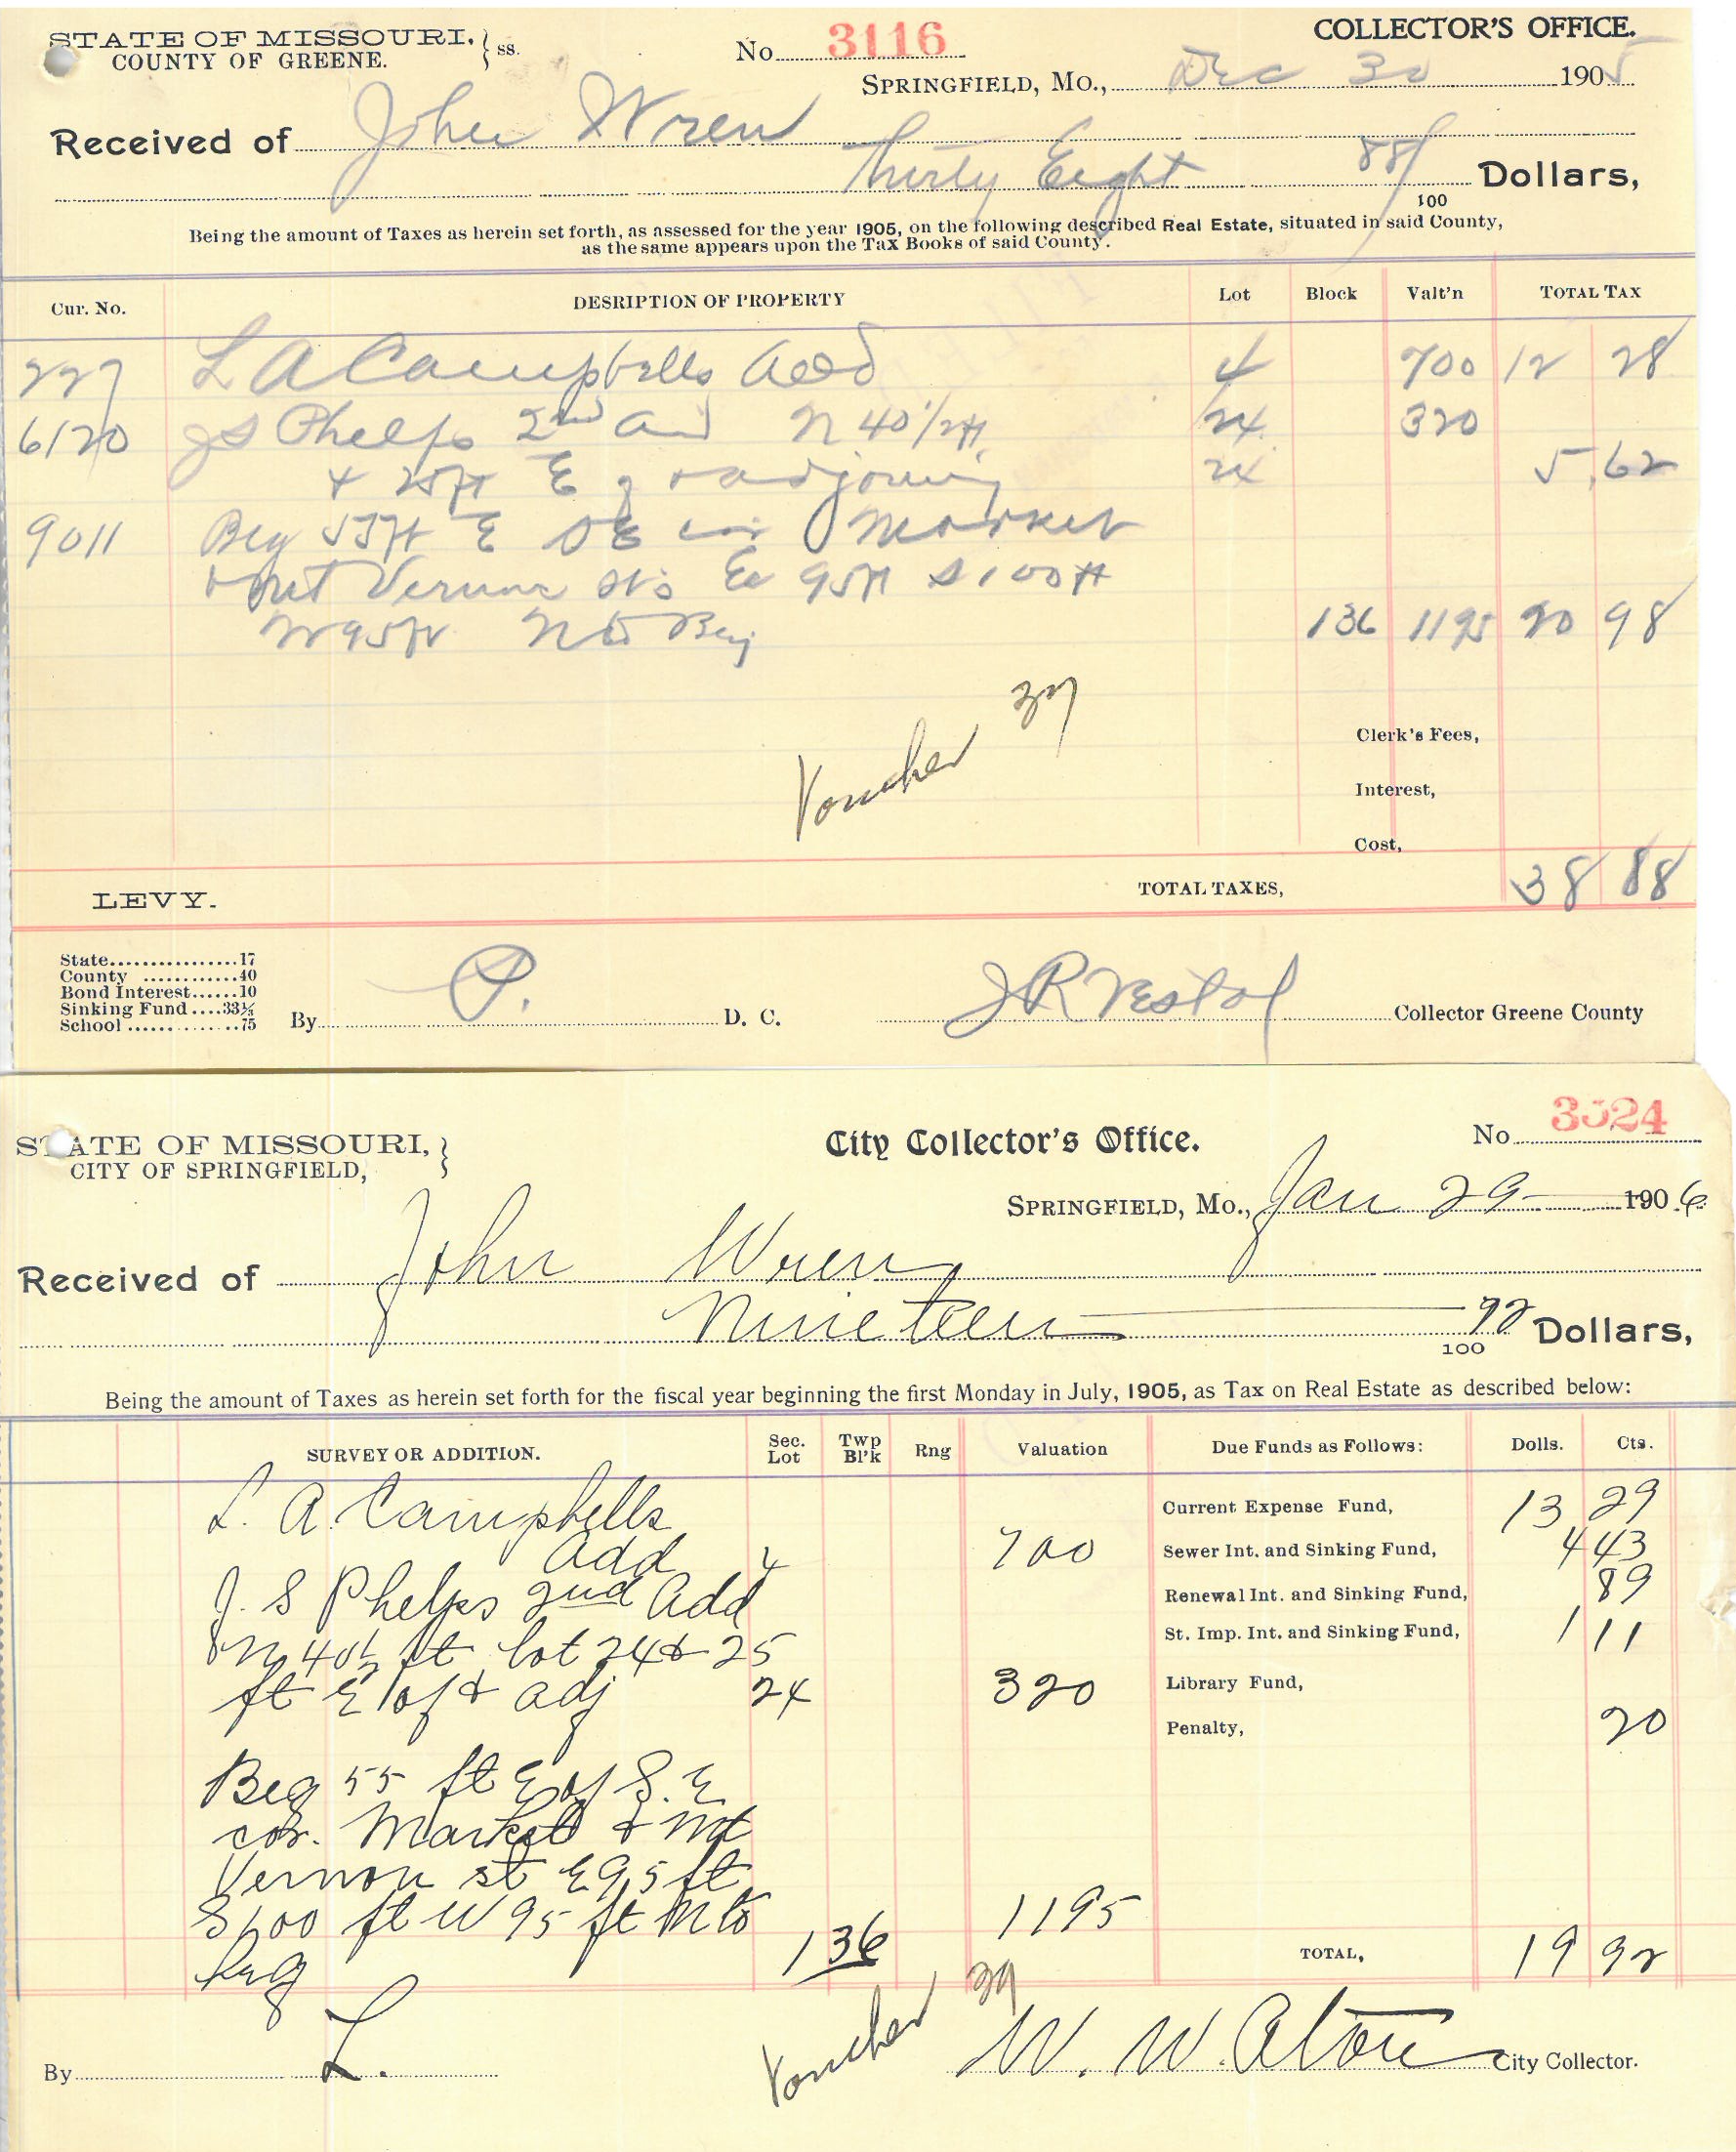 STATE OF MISSOURI, } ss.
COUNTY OF GREENE.
No. 3116
COLLECTOR'S OFFICE.
SPRINGFIELD, MO., Dec 30 1905
Received of John Wren
Thirty Eight 88/100 Dollars,
Being the amount of Taxes as herein set forth, as assessed for the year 1905, on the following described Real Estate, situated in said County,
as the same appears upon the Tax Books of said County.
Cur. No. DESRIPTION OF PROPERTY Lot Block Valt'n TOTAL TAX
227 L A Campbells Add 4 700 12 28
6120 JS Phelps 2nd Ad N 40 1/2 ft 24 320
+ 25 ft E of + adjoining 24 5,62
9011 Beg 55 ft E SE cor Market
+ Mt Vernon Sts E 95 ft S 100 ft
W 95 ft N to Beg 136 1195 20 98
Voucher 37
Clerk's Fees,
Interest,
Cost,
TOTAL TAXES, 38 88
LEVY.
State................17
County ............40
Bond Interest......10
Sinking Fund ....33⅓
School ...............75
By P. D. C.
J R Vestal Collector Greene County
STATE OF MISSOURI, }
CITY OF SPRINGFIELD,
City Collector's Office.
No. 3524
SPRINGFIELD, MO., Jan 29 1906
Received of John Wren
Nineteen 92/100 Dollars,
Being the amount of Taxes as herein set forth for the fiscal year beginning the first Monday in July, 1905, as Tax on Real Estate as described below:
SURVEY OR ADDITION. Sec. Lot Twp Bl'k Rng Valuation Due Funds as Follows: Dolls. Cts.
L. A. Campbells Current Expense Fund, 13 29
Add 4 700 Sewer Int. and Sinking Fund, 4 43
J. S Phelps 2nd Add Renewal Int. and Sinking Fund, 89
N 40½ ft lot 24 & 25 St. Imp. Int. and Sinking Fund, 1 11
ft E of & adj 24 320 Library Fund,
Penalty, 20
Beg 55 ft E of S. E
cor. Market & Mt
Vernon st E 95 ft
S 100 ft W 95 ft N to 1195
beg 136 TOTAL, 19 92
Voucher 39
By L.
W. W. Aton City Collector.